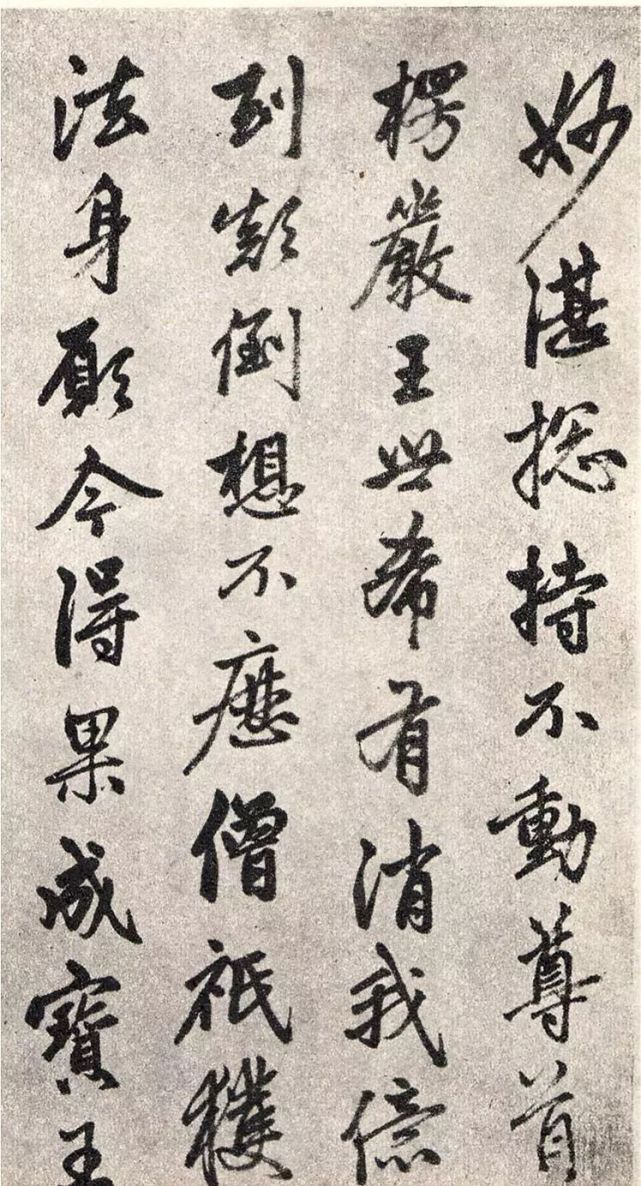 妙湛揔持不動尊首
楞嚴王世希有消我億
劫顛倒想不歷僧祇獲
法身願今得果成寶王